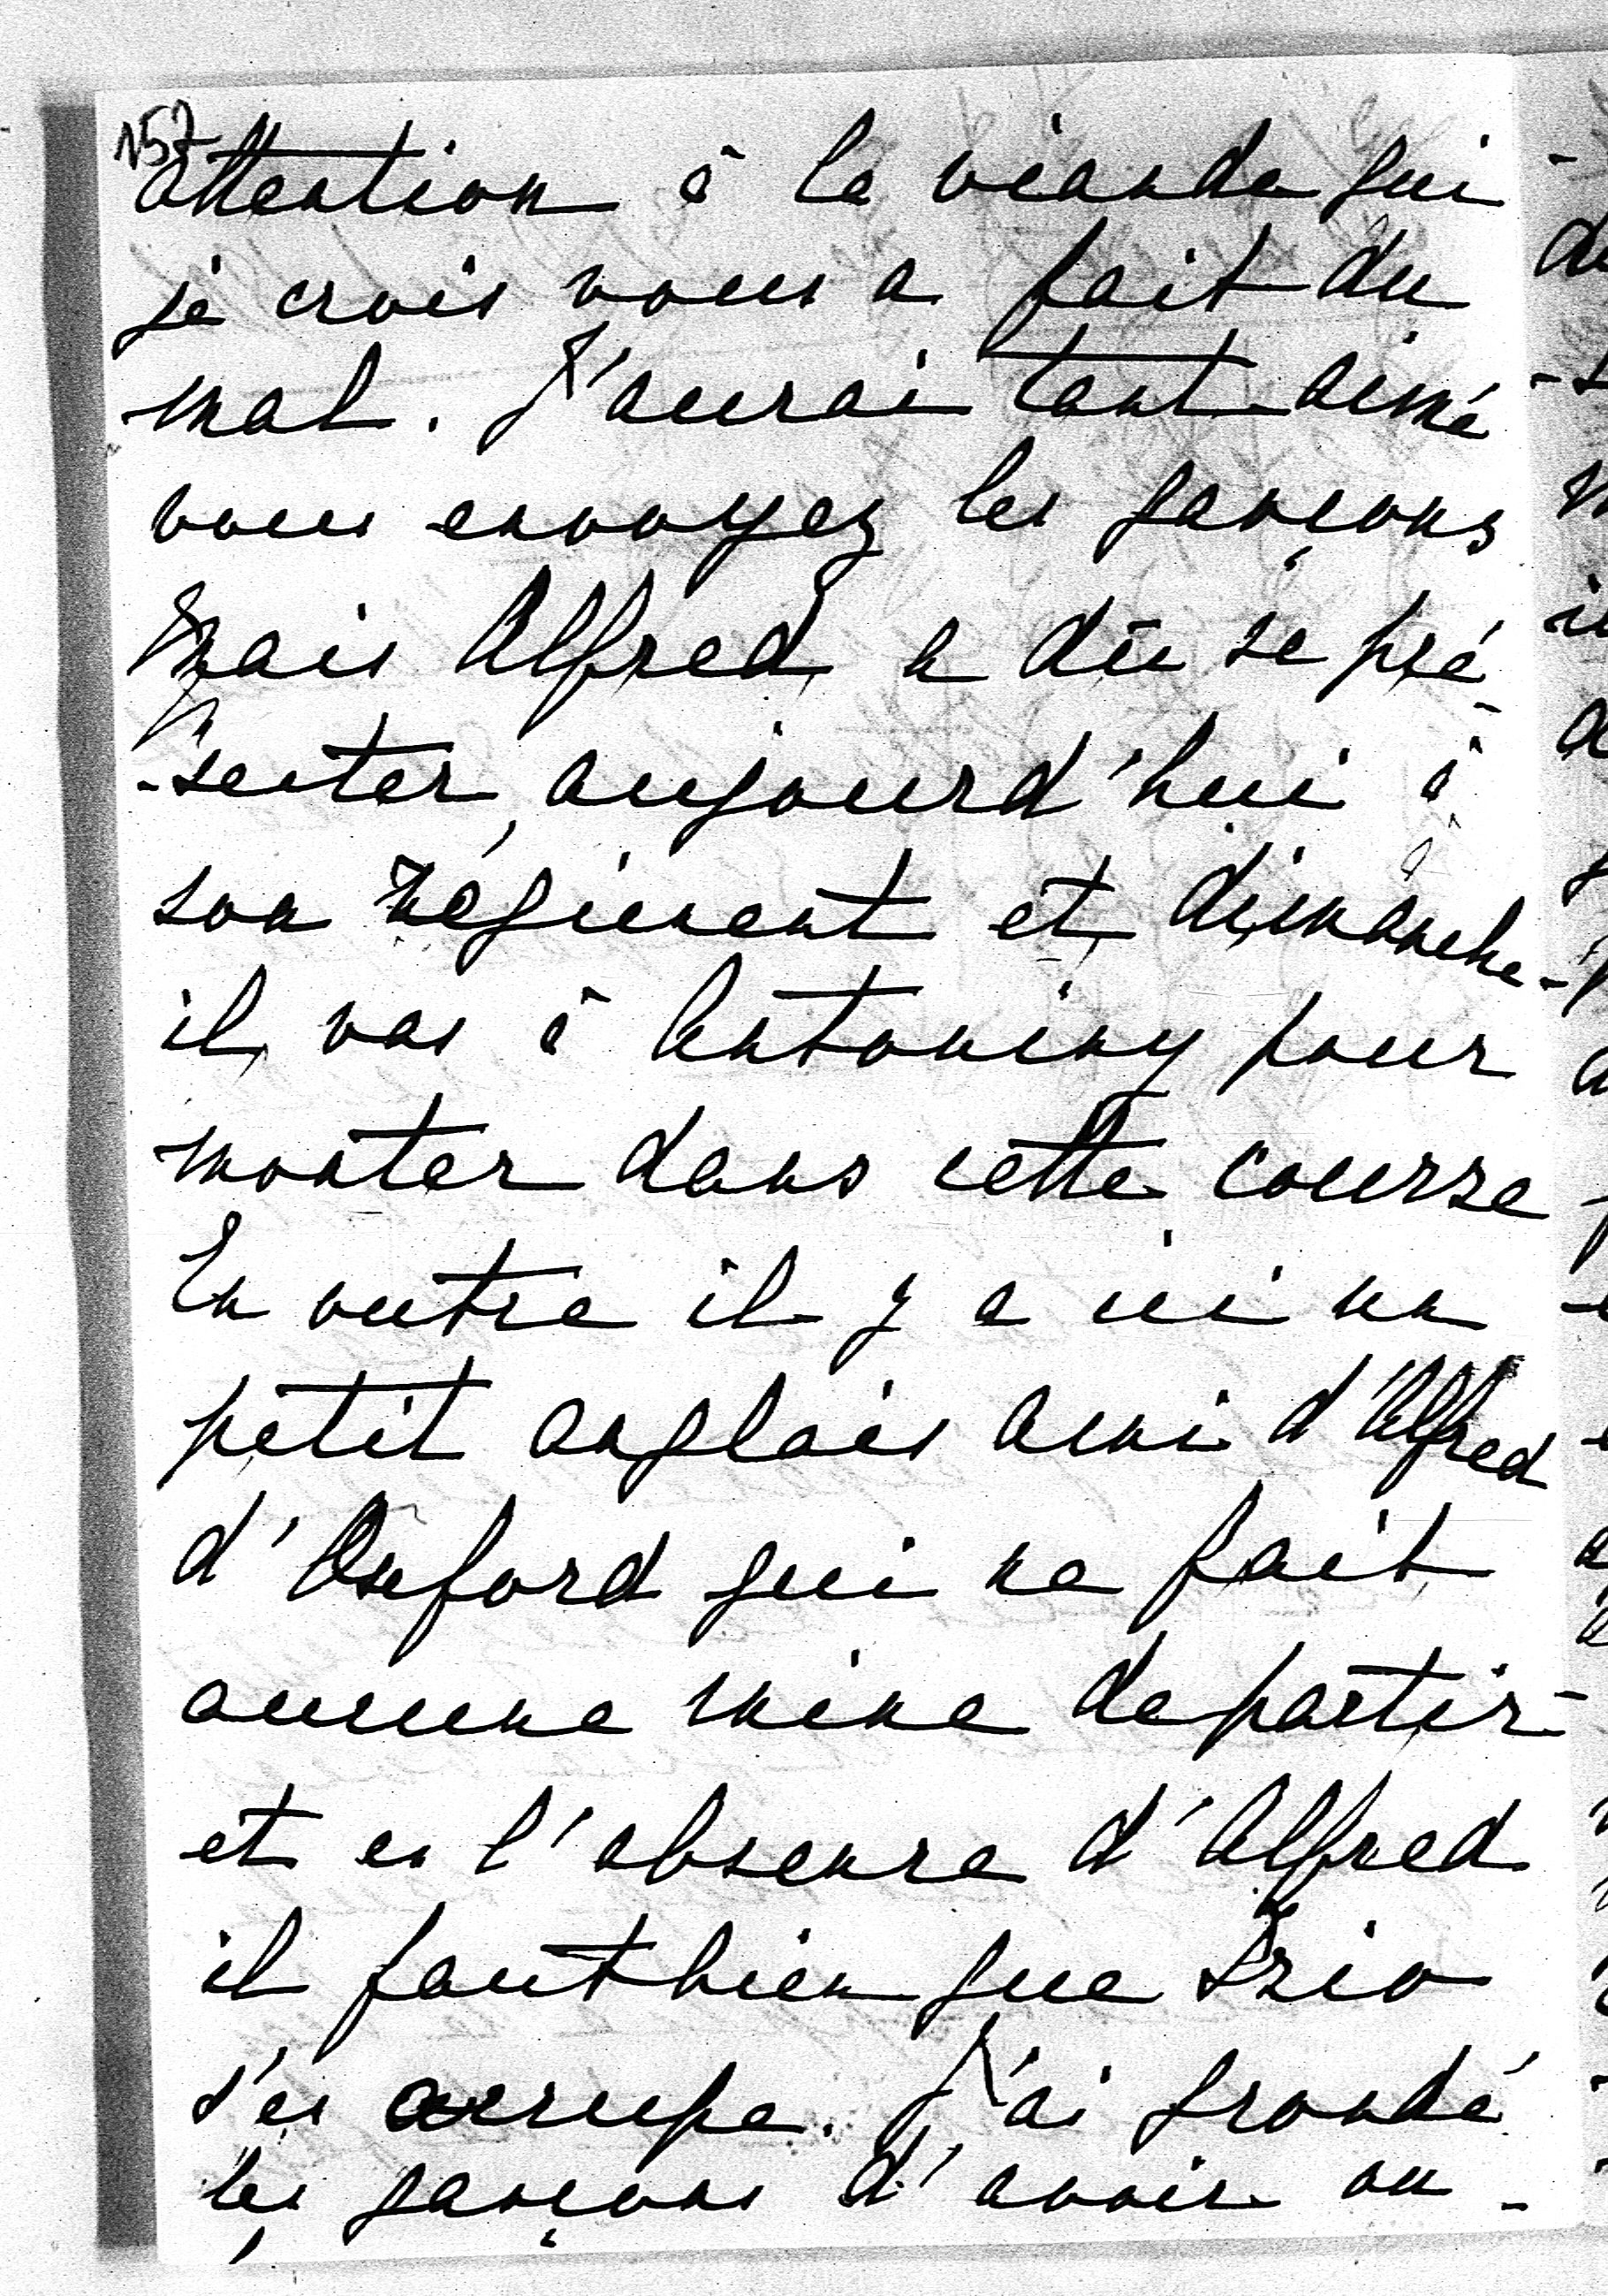 157
attention à la viande qui
je crois vous a fait du
mal. J'aurai tant aimé
vous envoyez les garçons
mais Alfred a dû se pré
-senter aujourd'hui à
son régiment et dimanche
il vas à Antoniny pour
monter dans cette course
En outre il y a ici un
petit anglais ami d'Alfred
d'Oxford qui ne fait
aucune mine de partir
et en l'absence d'Alfred
il faut bien que
s'en occupe. J'ai grondé
les garçons d'avoir ou-